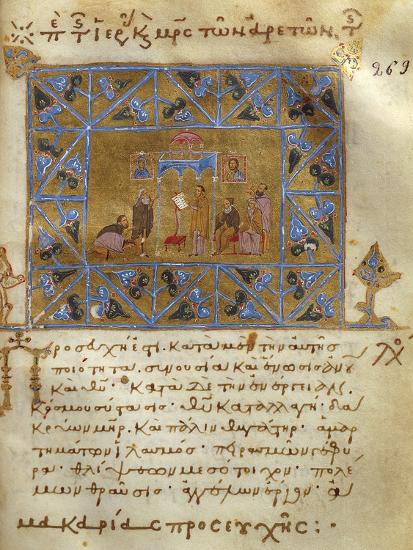 π̅ε̅ τ̅ ἱερᾶς κ̀ μρ̅ς τῶν ἀρετῶν, τ̅
269
Προσευχή ἐστι κατὰ μὲν τὴν αὐτῆς
ποιότητα, συνουσία καὶ ἕνωσις ἀν̅ου̅
καὶ θυ̅· κατὰ δὲ τὴν ἐνέργειαν,
κόσμου σύστασις· θυ̅ καταλλαγή· δα
κρύων μη̅ρ· καὶ πάλιν θυγάτηρ· ἁμαρ
τημάτων ἱλασμός· πειρασμῶν γέφυ
ρα· θλίψεων μεσότοιχον· πολέ
μων θραῦσις· ἀγγέλων ἔργον·
μακαρίας προσευχῆς: